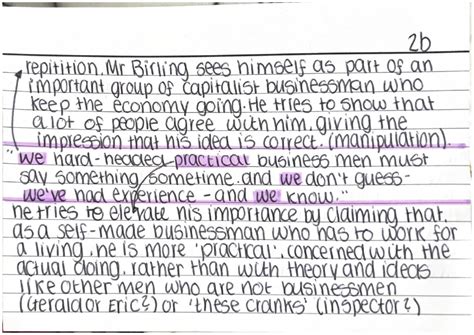 2b
repitition. Mr Birling sees himself as part of an
important group of capitalist businessman who
keep the economy going. He tries to show that
a lot of people agree with him, giving the
impression that his idea is correct. (manipulation).
"we hard-headed practical business men must
say something sometime. and we don't guess-
we've had experience - and we know."
he tries to elevate his importance by claiming that,
as a self-made businessman who has to work for
a living, he is more 'practical', concerned with the
actual doing, rather than with theory and ideas
like other men who are not businessmen
(Gerald or Eric?) or 'these cranks' (inspector?)